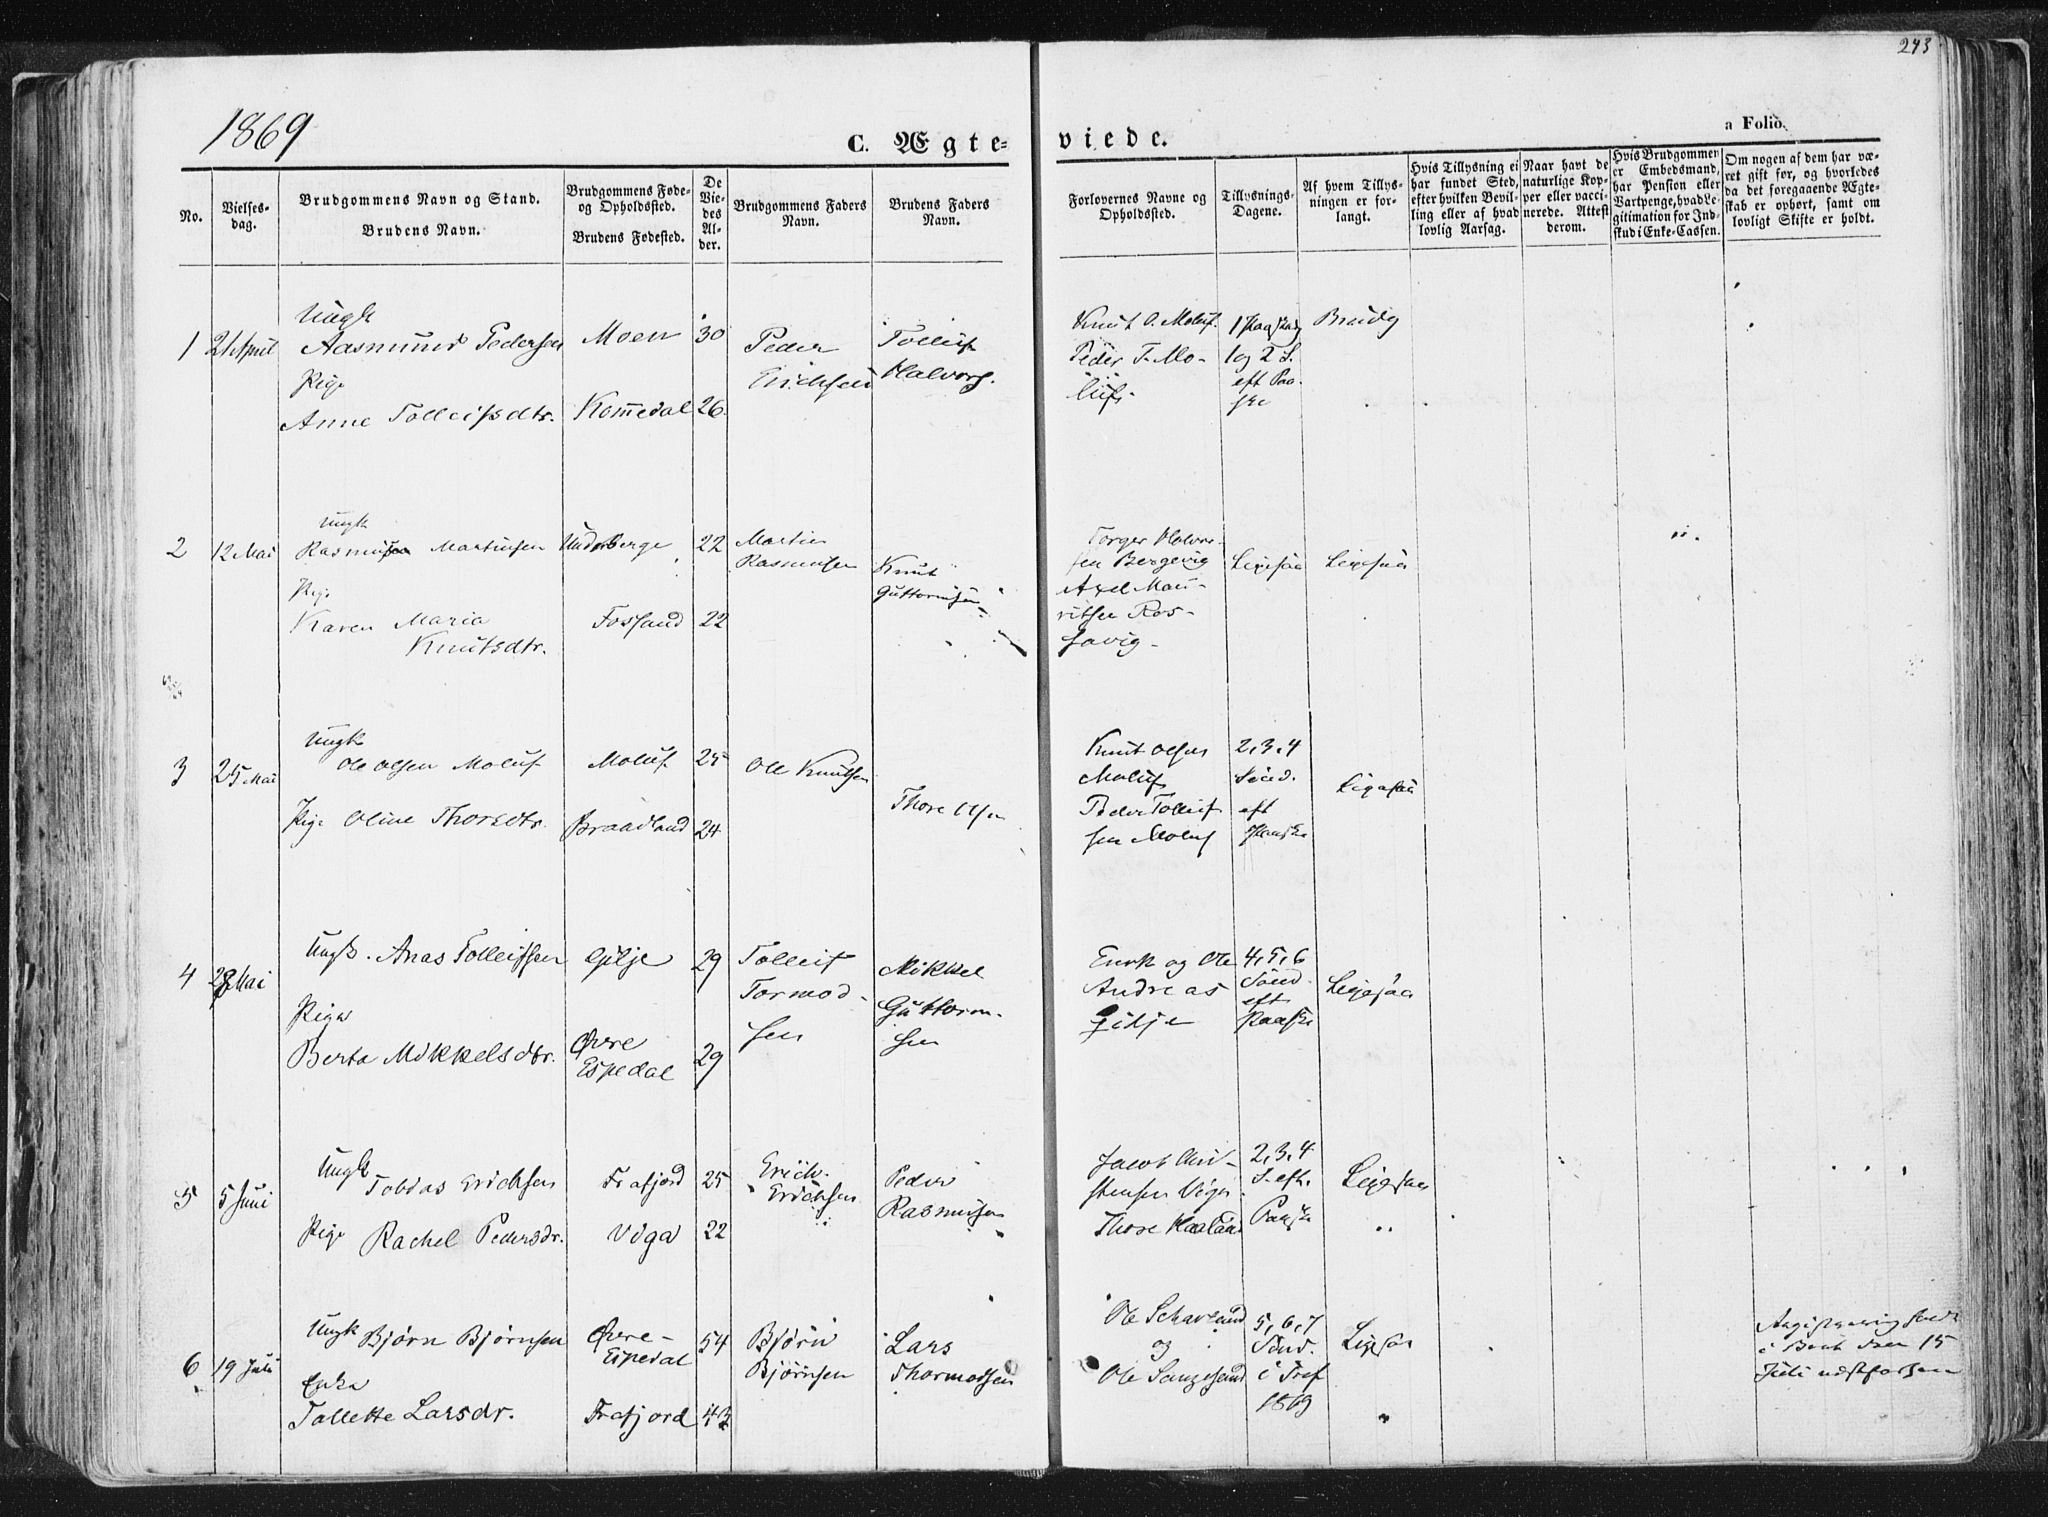 243
1869
C. Ægte-
viede.
a Folio.
No.
Vielses-
dag.
Brudgommens Navn og Stand.
Brudens Navn.
Brudgommens Føde-
og Opholdssted.
Brudens Fødested.
De
Vie-
des
Al-
der.
Brudgommens Faders
Navn.
Brudens Faders
Navn.
Forlovernes Navne og
Opholdssted.
Tillysnings-
Dagene.
Af hvem Tillys-
ningen er for-
langt.
Hvis Tillysning ei
har fundet Sted,
efter hvilken Bevil-
ling eller af hvad
lovlig Aarsag.
Naar havt de
naturlige Kop-
per eller vacci-
nerede. Attest
derom.
Hvis Brudgommen
er Embedsmand,
har Pension eller
Vartpenge, hvad Le-
gitimation for Ind-
skud i Enke-Cassen.
Om nogen af dem har væ-
ret gift før, og hvorledes
da det foregaaende Ægte-
skab er ophørt, samt om
lovligt Skifte er holdt.
1
21 April
Ungk
Aasmund Pedersen
Pige
Anne Tolleifsdtr.
Moen
Kommedal
30
26
Peder
Erichsen
Tolleif
Halvors.
Knut O. Moluf.
Peder T. Mo-
lufs.
1 Paaskedag
1 og 2 S.
eft Paa-
ske
Brudg
2
12 Mai
Ungk
Rasmus Martinsen
Pige
Karen Maria
Knutsdtr.
Underberge
Fossand
22
22
Martin
Rasmunsen
Knut
Guttormsen
Torger Halvor-
sen Bergevig
Axel Mau-
ritsen Ros-
savig.
Ligesaa
Ligesaa
3
25 Mai
Ungk
Ole Olsen Moluf
Pige Oline Thorsdtr.
Moluf
Braadland
25
24
Ole Knutsen
Thore Olsen
Knut Olsen
Moluf
Peder Tolleif
sen Moluf
2, 3, 4
Sønd.
eft
Paaske
Ligesaa
4
28 Mai
Ungk. Anas Tolleifsen
Pige
Berta Mikkelsdtr.
Gilje
Øvre
Espedal
29
29
Tolleif
Tormod-
sen
Mikkel
Guttorm-
sen
Enok og Ole
Andreas
Gilje
4, 5, 6
Sønd.
eft
Paaske
Ligesaa
5
5 Juni
Ungk
Tobias Erichsen
Pige Rachel Pedersdr.
Frafjord
Viga
25
22
Erich
Erichsen
Peder
Rasmusen
Jacob Chri-
stensen Viga
Thore Haaland
2, 3, 4
S. eft.
Paaske
Ligesaa
6
19 Juli
Ungk Bjørn Bjørnsen
Enke
Tallette Larsdr.
Øvre-
Espedal
Frafjord
54
43
Bjørn
Bjørnsen
Lars
Thormodsen
Ole Schavland
og
Ole Sangesand
5, 6, 7
Sønd.
i Tref
1869
Ligesaa
den 15
Juli